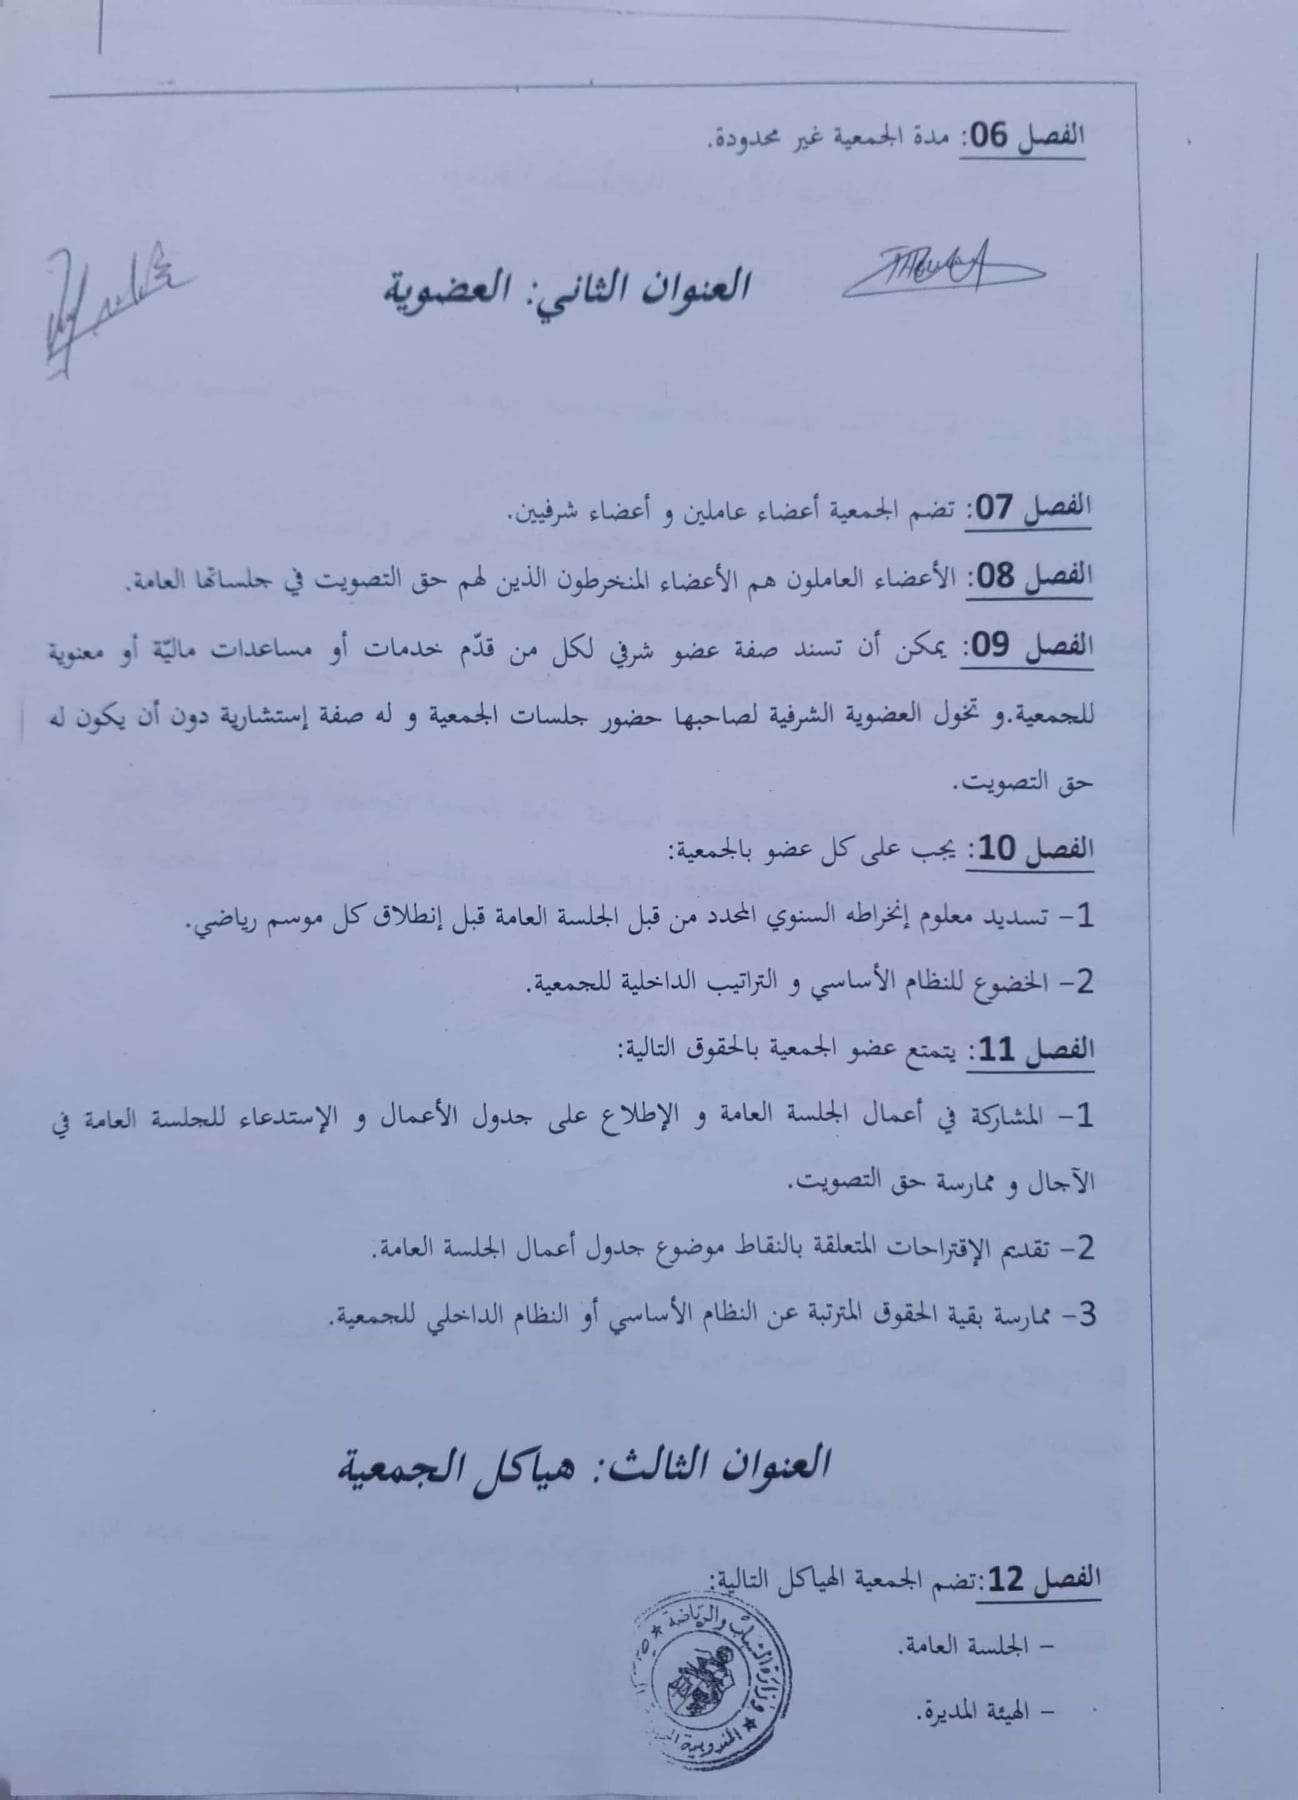 الفصل 06: مدة الجمعية غير محدودة.
العنوان الثاني: العضوية
الفصل 07: تضم الجمعية أعضاء عاملين و أعضاء شرفيين.
الفصل 08: الأعضاء العاملون هم الأعضاء المنخرطون الذين لهم حق التصويت في جلساتها العامة.
الفصل 09: يمكن أن تسند صفة عضو شرفي لكل من قدّم خدمات أو مساعدات ماليّة أو معنوية
للجمعية.و تخول العضوية الشرفية لصاحبها حضور جلسات الجمعية و له صفة إستشارية دون أن يكون له
حق التصويت.
الفصل 10: يجب على كل عضو بالجمعية:
1- تسديد معلوم إنخراطه السنوي المحدد من قبل الجلسة العامة قبل إنطلاق كل موسم رياضي.
2- الخضوع للنظام الأساسي و التراتيب الداخلية للجمعية.
الفصل 11: يتمتع عضو الجمعية بالحقوق التالية:
1- المشاركة في أعمال الجلسة العامة و الإطلاع على جدول الأعمال و الإستدعاء للجلسة العامة في
الآجال و ممارسة حق التصويت.
2- تقديم الإقتراحات المتعلقة بالنقاط موضوع جدول أعمال الجلسة العامة.
3- ممارسة بقية الحقوق المترتبة عن النظام الأساسي أو النظام الداخلي للجمعية.
العنوان الثالث: هياكل الجمعية
الفصل 12:تضم الجمعية الهياكل التالية:
- الجلسة العامة.
- الهيئة المديرة.
وزارة الشباب والرياضة
المندوبية